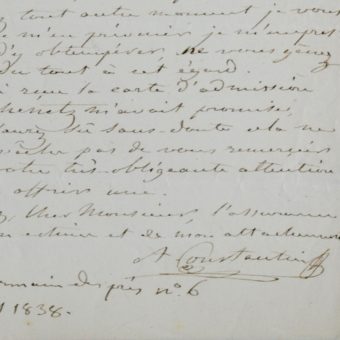 tout autre moment je vous
m'en priver je m'empres
d'y obtempérer, ne vous gênez
du tout à cet égard.
reçu la carte d'admission
m'avait promise,
sans doute cela ne
pas de vous remercier
votre très-obligeante attention
offrir une.
Cher Monsieur, l'assurance
estime et de mon attachement
A Constantin
germain des prés n° 6
1838.